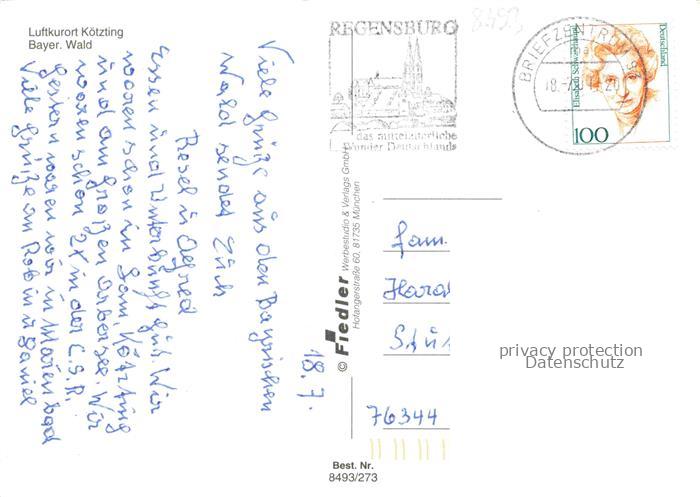 Luftkurort Kötzting
Bayer. Wald
18.7.
Viele Grüße aus den Bayrischen
Wald sendet Euch
Resel u Alfred
Essen und Unterkunft gut. Wir
waren schon in Cham, Kötzting
und am großen Arbersee. Wir
waren schon 2x in der C.S.R.
gestern waren wir in Marienbad
Viele Grüße an Robin u Daniel
© Fiedler Werbestudio & Verlags GmbH
Hofangerstraße 60, 81735 München
8493
REGENSBURG
das mittelalterliche
Wunder Deutschlands
BRIEFZENTRUM
18.-7.
Elisabeth Schwarzhaupt
Deutschland
100
Fam.
Haral
76344
privacy protection
Datenschutz
Best. Nr.
8493/273